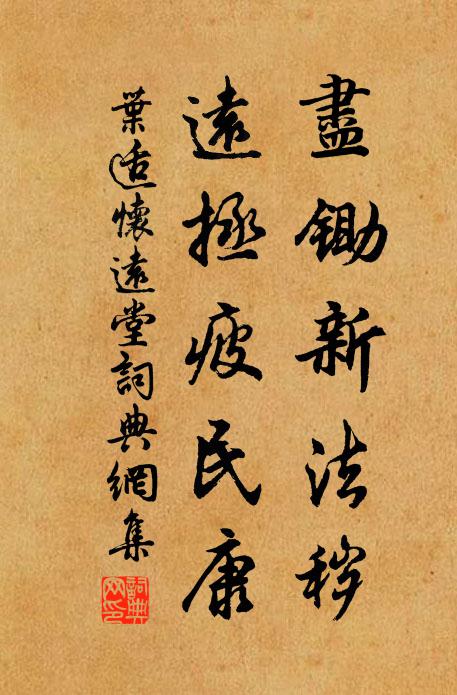 盡鋤新法穢
遠拯疲民康
葉适懷遠堂詞典網集
詞典網印